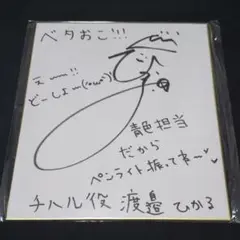 ベタおこ!!!
えー!!
どーしよー(´ω`)
青色担当
だから
ペンライト振ってネー
チハル役 渡邉ひかる